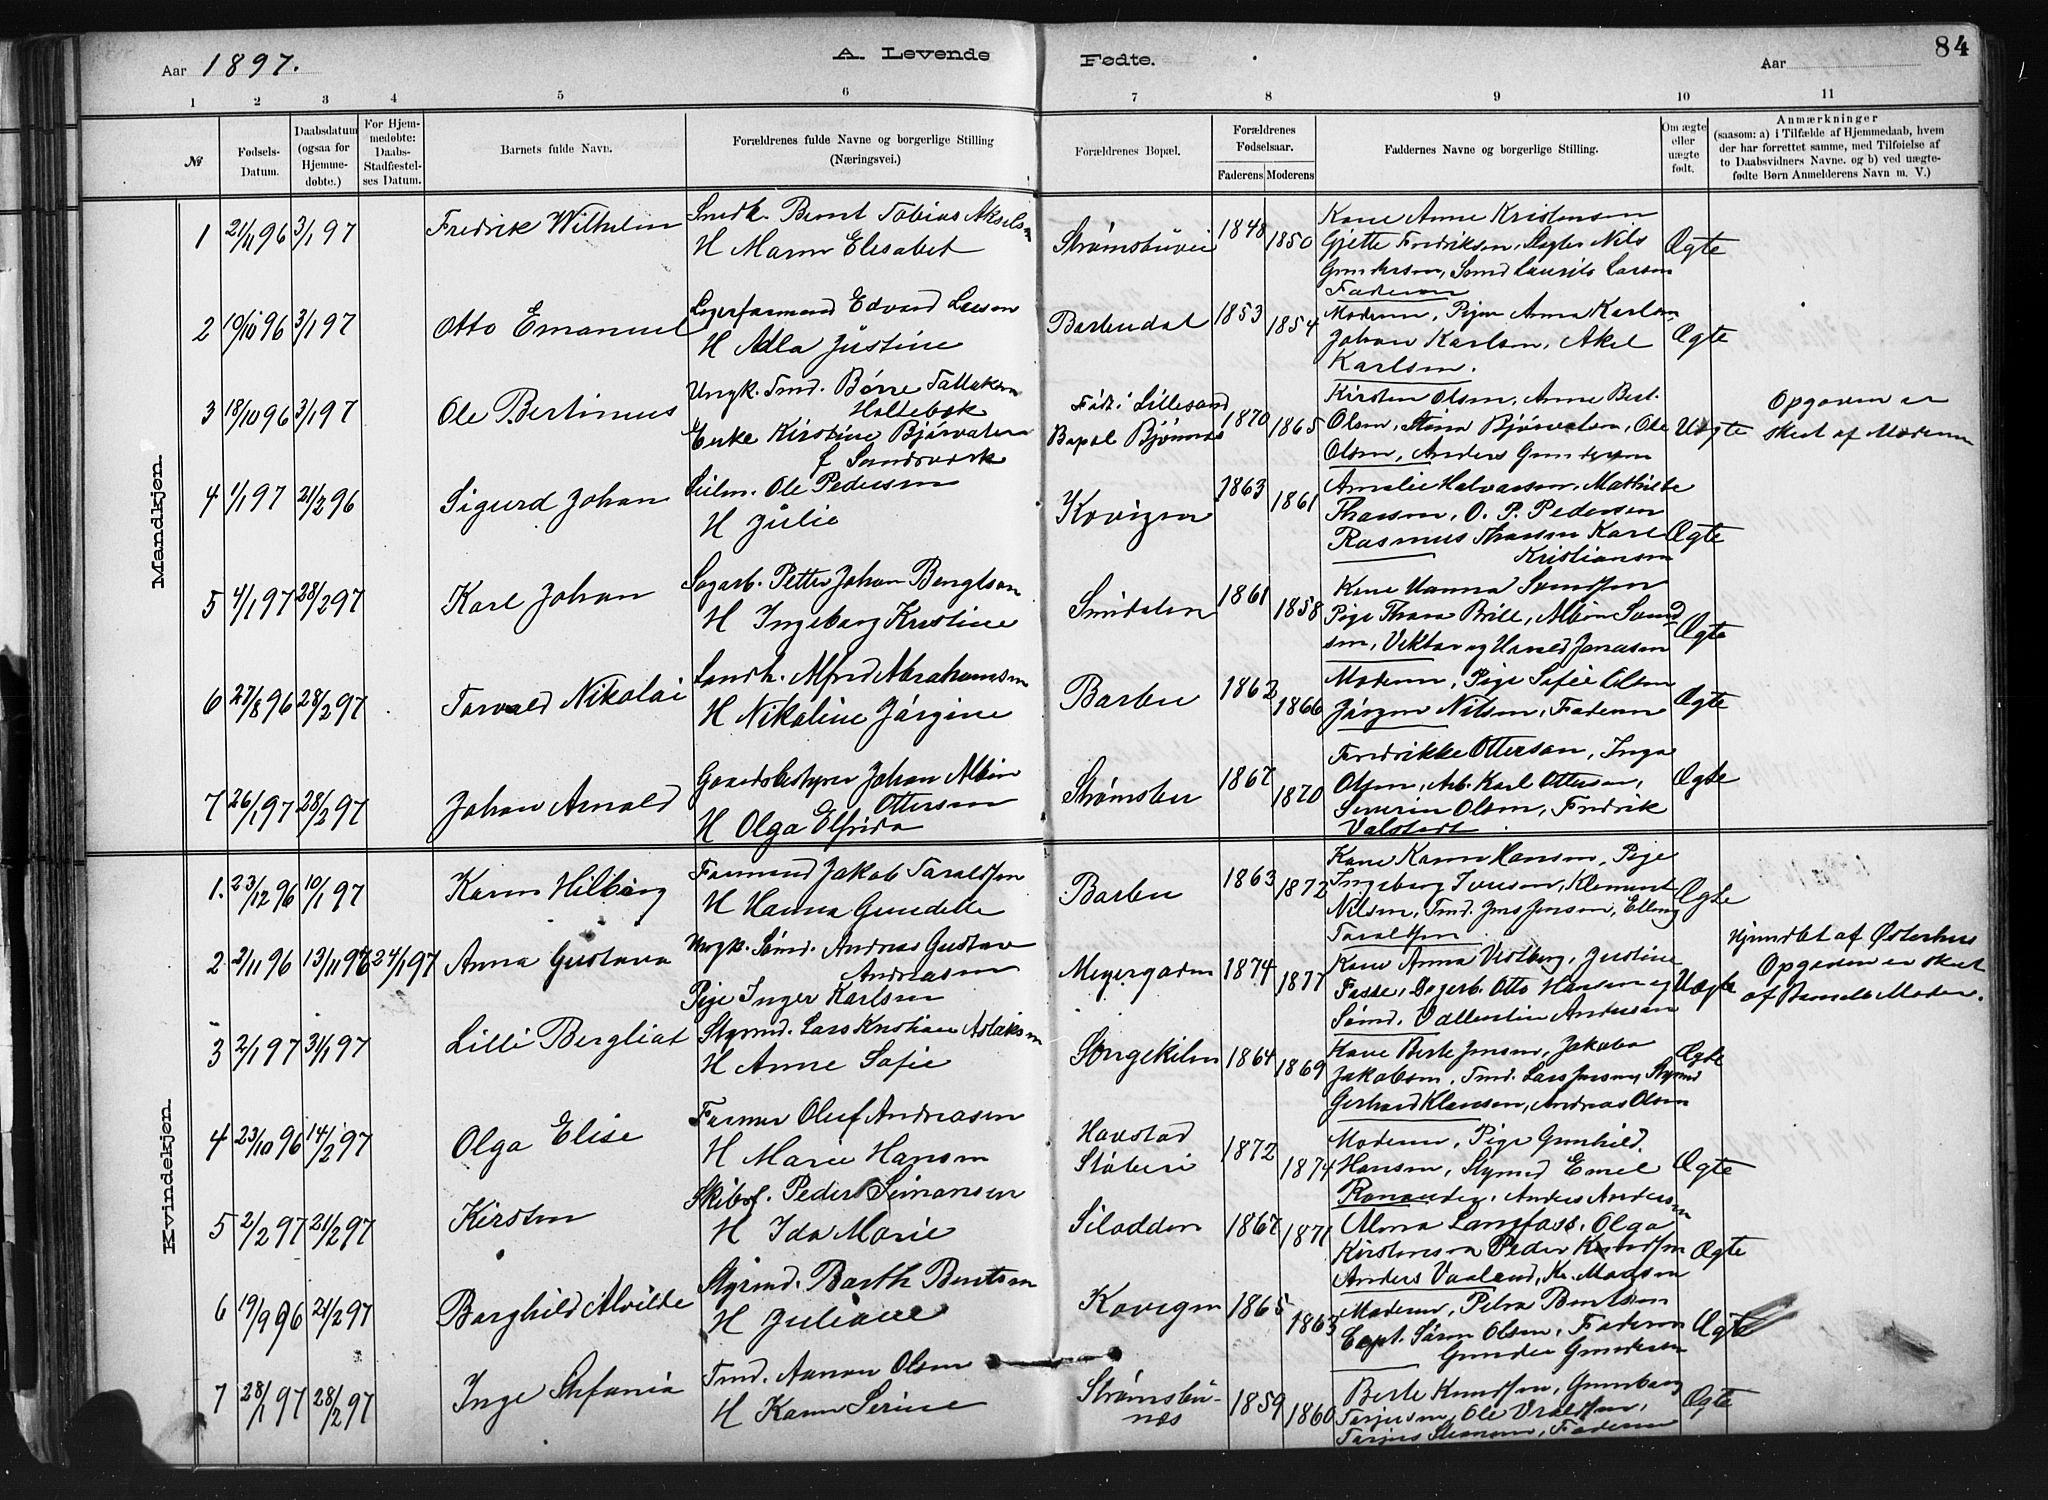 Aar 1897.
A. Levende Fødte.
Aar
84
1 2 3 4 5 6 7 8 9 10 11
№
Fødsels-Datum.
Daabsdatum (ogsaa for Hjemmedøbte.)
For Hjemmedøbte: Daabs-Stadfæstelses Datum.
Barnets fulde Navn.
Forældrenes fulde Navne og borgerlige Stilling (Næringsvei.)
Forældrenes Bopæl.
Forældrenes Fødselsaar.
Faderens Moderens
Faddernes Navne og borgerlige Stilling.
Om ægte eller uægte født.
Anmærkninger
(saasom: a) i Tilfælde af Hjemmedaab, hvem der har forrettet samme, med Tilføielse af to Daabsvidners Navne. og b) ved uægtefødte Børn Anmelderens Navn m. V.)
Mandkjøn.
1 21/11 96 3/1 97 Fredrik Wilhelm
Snedk. Bernt Tobias Akselsen
H Maren Elisabet
Strømsbuvei 1848 1850
Kone Anne Kristensen
Gjette Fredriksen, Slagter Nils
Gundersen, Sømd Laurits Larsen
Faderen
Ægte
2 19/10 96 3/1 97 Otto Emanuel
Lagerformand Edvard Larson
H Adla Justine
Barbudal 1853 1854
Moderen, Pigen Anna Karlsen,
Johan Karlsen, Aksel
Karlsen.
Ægte
3 18/10 96 3/1 97 Ole Bertinius
Ungk. Tmd. Børre Tallaksen
Holtebæk
Enke Kirstine Bjørvaten
f Sandsværk
Født i Lillesand
Bopæl Bjønnes 1870 1865
Kirsten Olsen, Anne Bert.
Olsen, Stina Bjørvaten, Ole
Olsen, Anders Gundersen
Uægte
Opgaven er
skeet af Moderen
4 1/1 97 21/2 96 Sigurd Johan
Seilm. Ole Pedersen
H Julie
Kovigen 1863 1861
Amalie Halvorsen, Mathilde
Thorsen, O. P. Pedersen
Rasmus Thorsen Karl
Kristiansen
Ægte
5 4/1 97 28/2 97 Karl Johan
Sagarb. Petter Johan Bengtson
H Ingeborg Kristine
Smidalen 1861 1858
Kone Hanna
Pige Thora Brill, Albin
sen, Viktor og Harald Jonassen
Ægte
6 27/8 96 28/2 97 Torvald Nikolai
Landh. Alfred Abrahamsen
H Nikoline Jørgine
Barbu 1862 1866
Moderen, Pige Sofie Olsen
Jørgen Nilsen, Faderen
Ægte
7 26/1 97 28/2 97 Johan Arnold
Gaardsbestyrer Johan Albin
Ottersen
H Olga Elfrida
Strømsbu 1867 1870
Fredrikke Ottersen, Inga
Olsen, Arb. Karl Ottersen,
Severin Olsen, Fredrik
Valstedt
Ægte
Kvindekjøn.
1. 23/12 96 10/1 97 Karen Hilborg
Formand Jakob Taraldsen
H Hanna Gundelle
Barbu 1863 1872
Kone Karen Hansen, Pige
Ingeborg Iversen, Klement
Nilsen, Tmd. Jens Jensen, Elling
Taraldsen
Ægte
2 2/11 96 13/11 96 24/1 97 Anna Gustava
Ungk. Sømd. Andreas Gustav
Andreasen
Pige Inger Karlsen
Meyergaden 1874 1877
Kone Anna Vidberg, Justine
Fasse, Dagarb. Otto Hansen og
Sømd. Vallentin Andersen
Uægte
Hjemdbt af Østerhus
Opgaven er skeet
af Barnets Moder.
3 2/1 97 31/1 97 Lilli Bergliot
Styrmd. Lars Kristian Aslaksen
H Anne Sofie
Songekilen 1864 1869
Kone Berte Jensen, Jakoba
Jakobsen, Tmd. Lars Jensen, Styrmd
Gerhard Klausen, Andreas Olsen
Ægte
4 23/10 96 14/2 97 Olga Elise
Farmer Oluf Andreasen
H Marie Hansen
Havstad
Støberi 1872 1874
Moderen, Pige Gunhild
Hansen, Styrmd Emil
Anders Andersen
Ægte
5 2/2 97 21/2 97 Kirsten
Skibsf. Peder Simonsen
H Ida Marie
Silodden 1867 1871
Alma Langfass, Olga
Kirstensen Peder Knudsen
Anders Vaaland, Kr. Madsen
Ægte
6 19/9 96 21/2 97 Borghild Alvilde
Styrmd. Barth Berntsen
H Juliane
Kovigen 1865 1863
Moderen, Petra Berntsen
Capt. Søren Olsen, Faderen
Gunder Gundersen
Ægte
7 28/1 97 28/2 97 Inge Stefania
Tmd. Aanon Olsen
H Karen Serine
Strømsbu-
næs 1859 1860
Berte Knudsen, Gunborg
Tarjusen, Ole
Tarjus, Faderen
Ægte